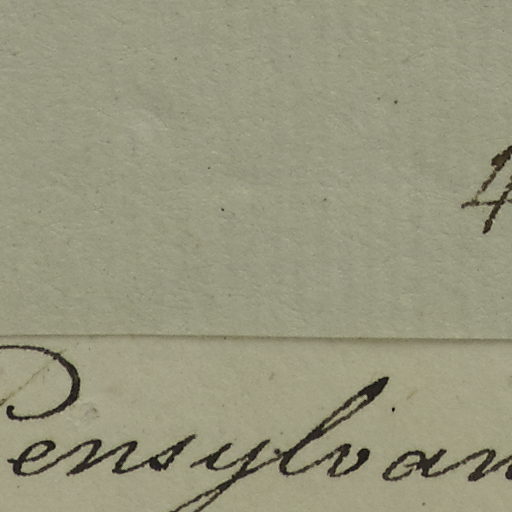 4
Pensylvan